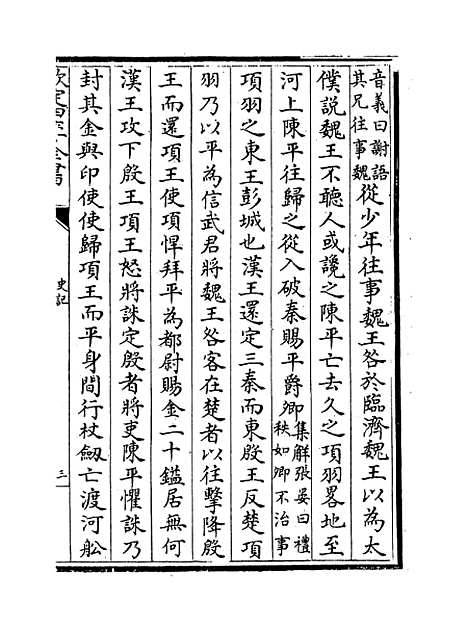 音義曰謝語
其兄往事魏
從少年往事魏王咎於臨濟魏王以為太
僕說魏王不聽人或讒之陳平亡去久之項羽畧地至
河上陳平往歸之從入破秦賜平爵卿
集解張晏曰禮
秩如卿不治事
項羽之東王彭城也漢王還定三秦而東殷王反楚項
羽乃以平為信武君將魏王咎客在楚者以往擊降殷
王而還項王使項悍拜平為都尉賜金二十鎰居無何
漢王攻下殷王項王怒將誅定殷者將吏陳平懼誅乃
封其金與印使使歸項王而平身間行杖劔亡渡河舩
欽定四庫全書
史記
三